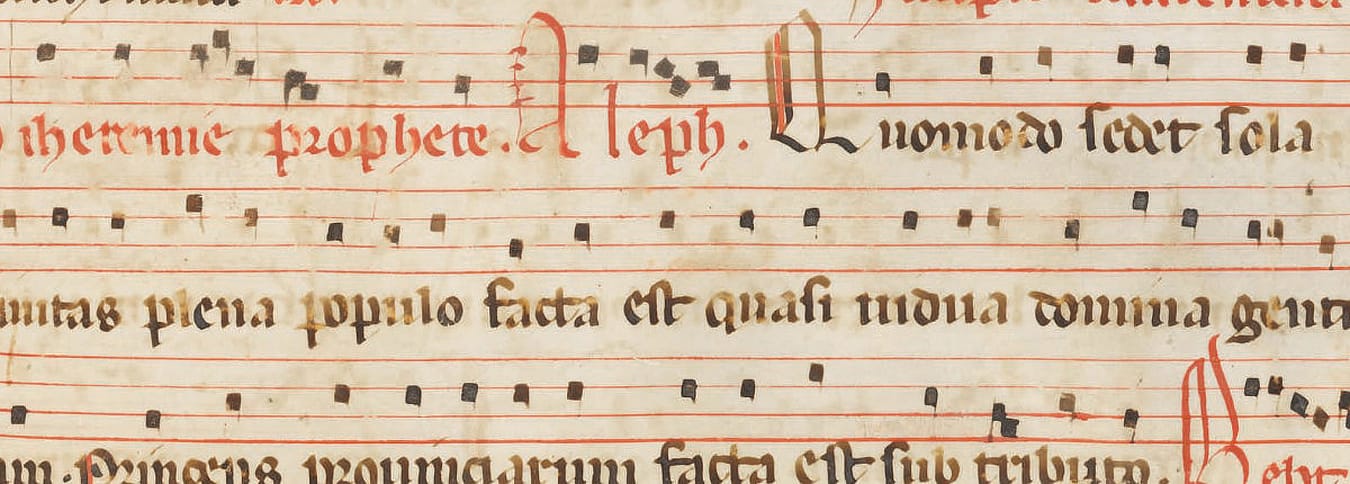 iheremie prophete. Aleph. Quomodo sedet sola
uitas plena populo facta est quasi uidua domina genti
um. Princeps prouinciarum facta est sub tributo. Beht